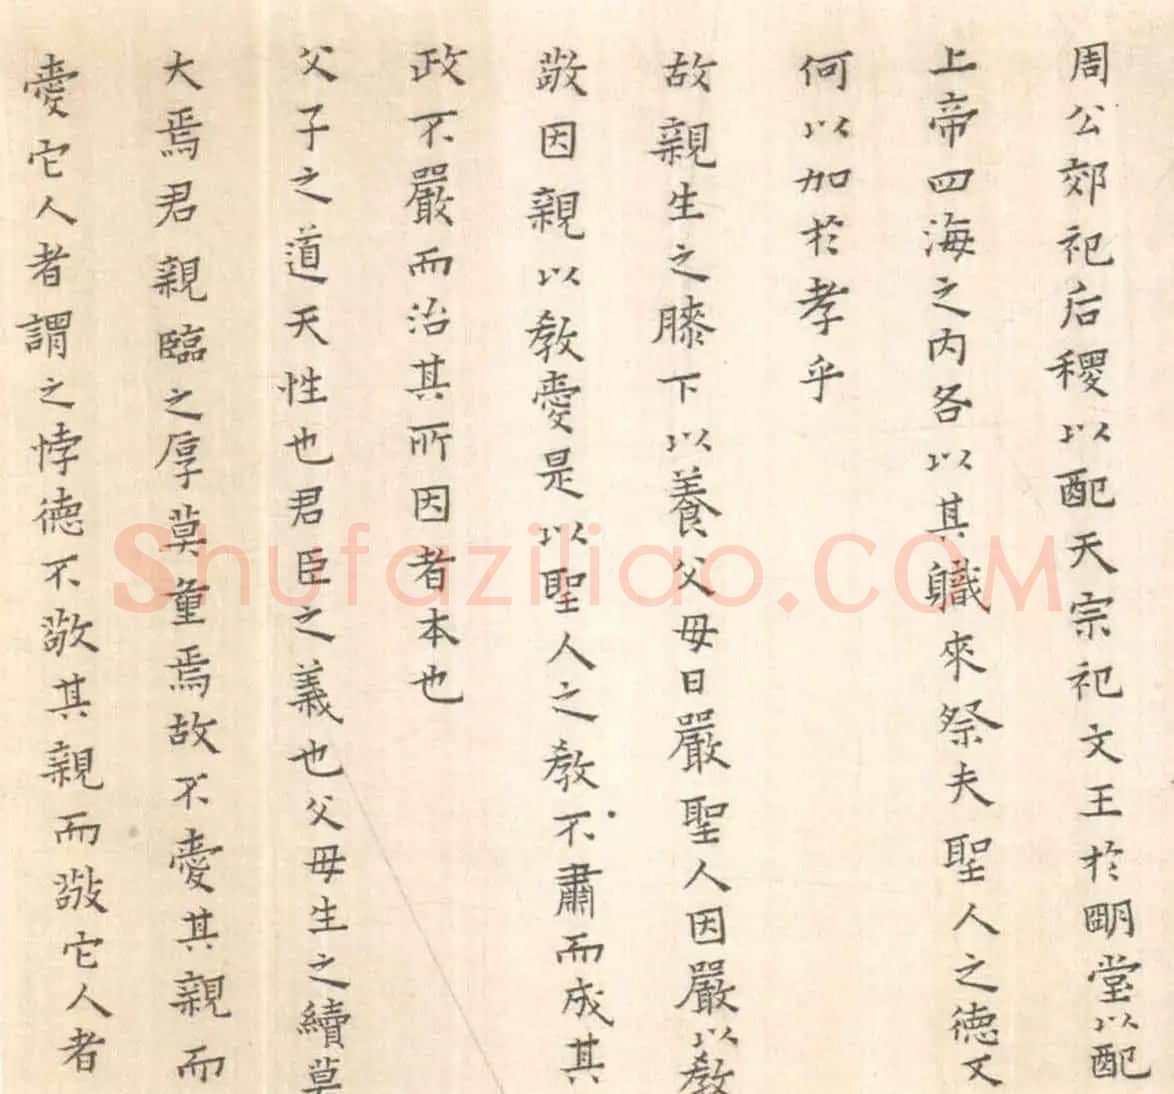 周公郊祀后稷以配天宗祀文王於明堂以配
上帝四海之內各以其職來祭夫聖人之德又
何以加於孝乎
故親生之膝下以養父母日嚴聖人因嚴以教
敬因親以教愛是以聖人之教不肅而成其
政不嚴而治其所因者本也
父子之道天性也君臣之義也父母生之續莫
大焉君親臨之厚莫重焉故不愛其親而
愛它人者謂之悖德不敬其親而敬它人者
Shufaziliao.COM